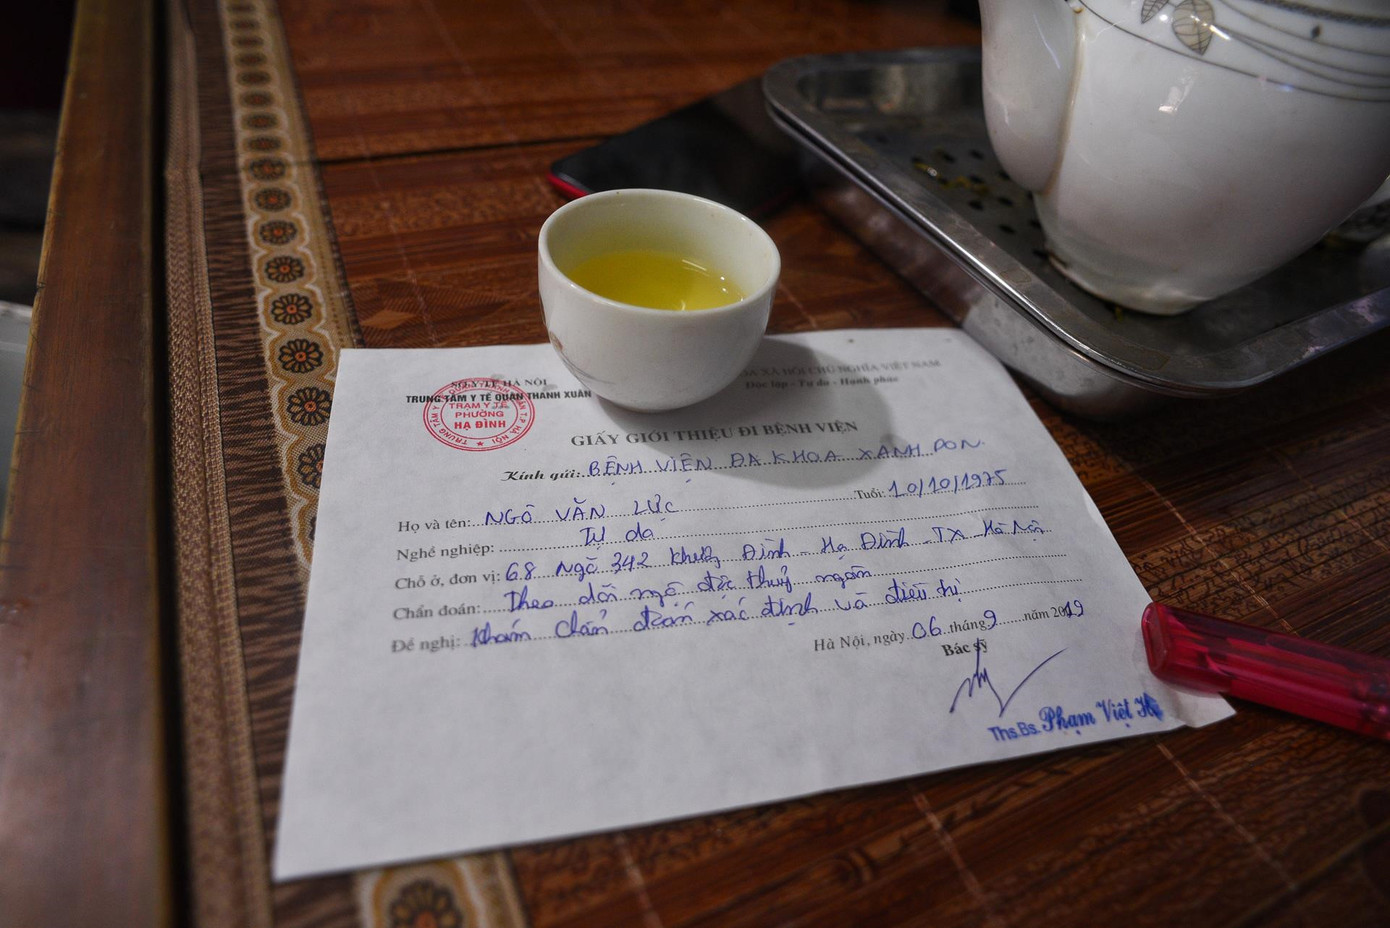 SỞ Y TẾ HÀ NỘI
TRUNG TÂM Y TẾ QUẬN THANH XUÂN
XÃ HỘI CHỦ NGHĨA VIỆT NAM
Độc lập - Tự do - Hạnh phúc
TRẠM Y TẾ
PHƯỜNG
HẠ ĐÌNH
GIẤY GIỚI THIỆU ĐI BỆNH VIỆN
Kính gửi: BỆNH VIỆN ĐA KHOA XANH PON
Họ và tên: NGÔ VĂN LỰC Tuổi: 10/10/1975
Nghề nghiệp: Tự do
Chỗ ở, đơn vị: 68 Ngõ 342 Khương Đình - Hạ Đình - TX - Hà Nội
Chẩn đoán: Theo dõi ngộ độc thuỷ ngân
Đề nghị: Khám chẩn đoán xác định và điều trị
Hà Nội, ngày 06 tháng 9 năm 2019
Bác sỹ
Ths.Bs. Phạm Việt